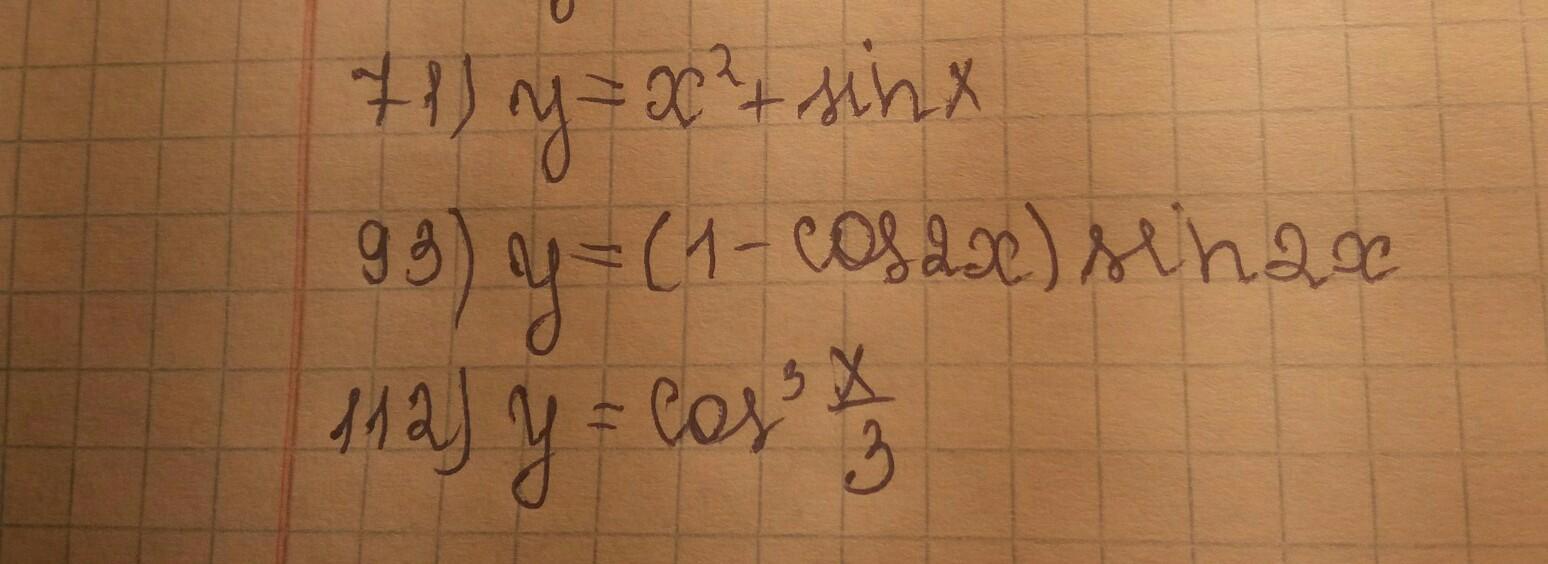 71) y = x² + sin x
93) y = (1 - cos 2x) sin 2x
112) y = cos³ x/3